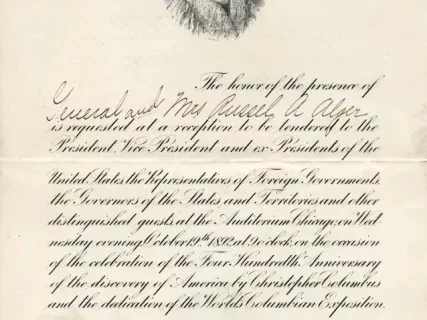 The honor of the presence of
General and Mrs Russel A Alger
is requested at a reception to be tendered to the
President, Vice President and ex Presidents of the
United States, the Representatives of Foreign Governments,
the Governors of the States and Territories and other
distinguished guests, at the Auditorium Chicago, on Wed-
nesday evening October 19th 1892, at 9 o'clock, on the occasion
of the celebration of the Four Hundredth Anniversary
of the discovery of America by Christopher Columbus
and the dedication of the World's Columbian Exposition.